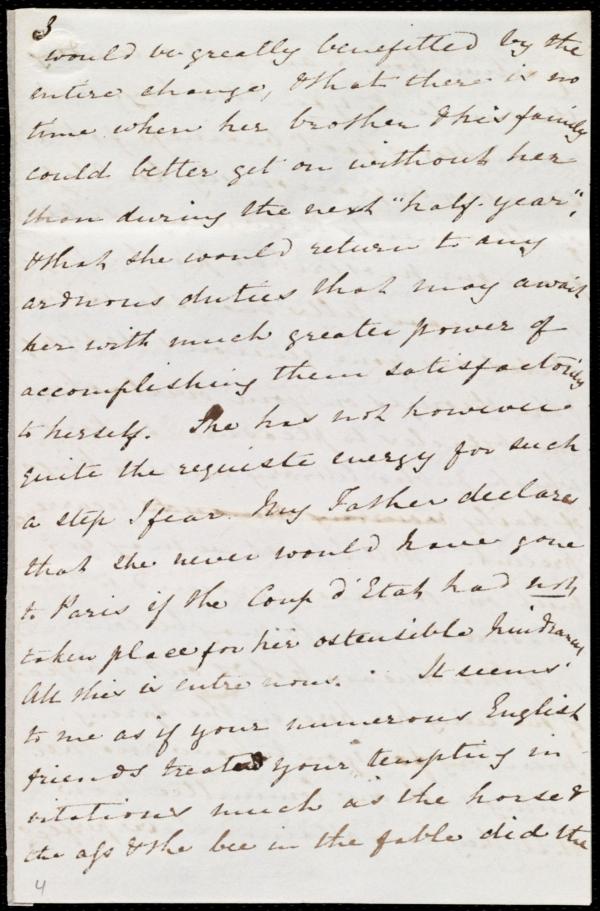 3
would be greatly benefitted by the
entire change, & that there is no
time when her brother & his family
could better get on without her
than during the next "half-year",
& that she would return to any
arduous duties that may await
her with much greater power of
accomplishing them satisfactorily
to herself. She has not however
quite the requisite energy for such
a step I fear. My Father declares
that she never would have gone
to Paris if the Coup d'Etat had not
taken place for her ostensible hindrance
All this is entre nous. It seems
to me as if your numerous English
friends treated your tempting in
vitations much as the horse &
the ass & the bee in the fable did the
4